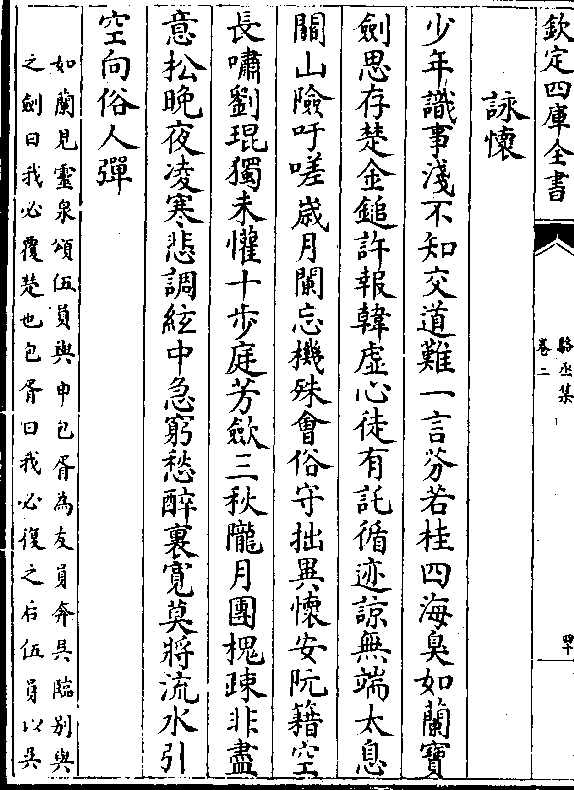 欽定四庫全書
駱丞集
卷二
詠懷
少年識事淺不知交道難一言芬若桂四海臭如蘭寳
劍思存楚金鎚許報韓虚心徒有託循迹諒無端太息
關山險吁嗟歳月闌忘機殊會俗守拙異懷安阮籍空
長嘯劉琨獨未懽十步庭芳斂三秋隴月團槐疎非盡
意松晚夜凌寒悲調絃中急窮愁醉裏寛莫將流水引
空向俗人彈
如蘭見靈泉頌伍員與申包胥為友員奔吳臨别與
之劍曰我必覆楚也包胥曰我必復之后伍員以吳